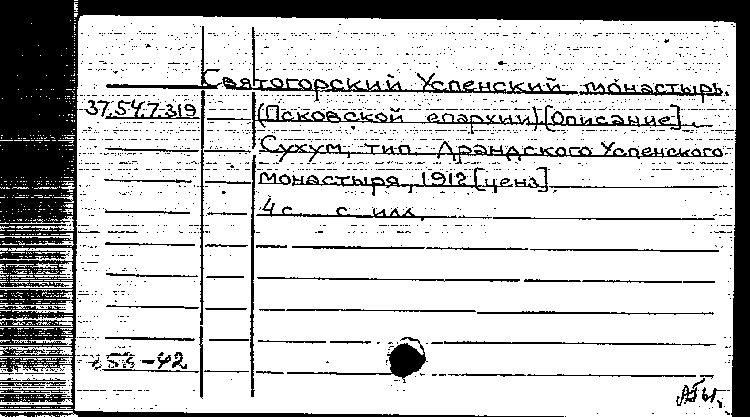 Святогорский Успенский монастырь.
37.54.7.319 (Псковской епархии) [Описание].
Сухум, тип. Драндского Успенского
монастыря, 1912 [ценз].
4 с. с илл.
53-42